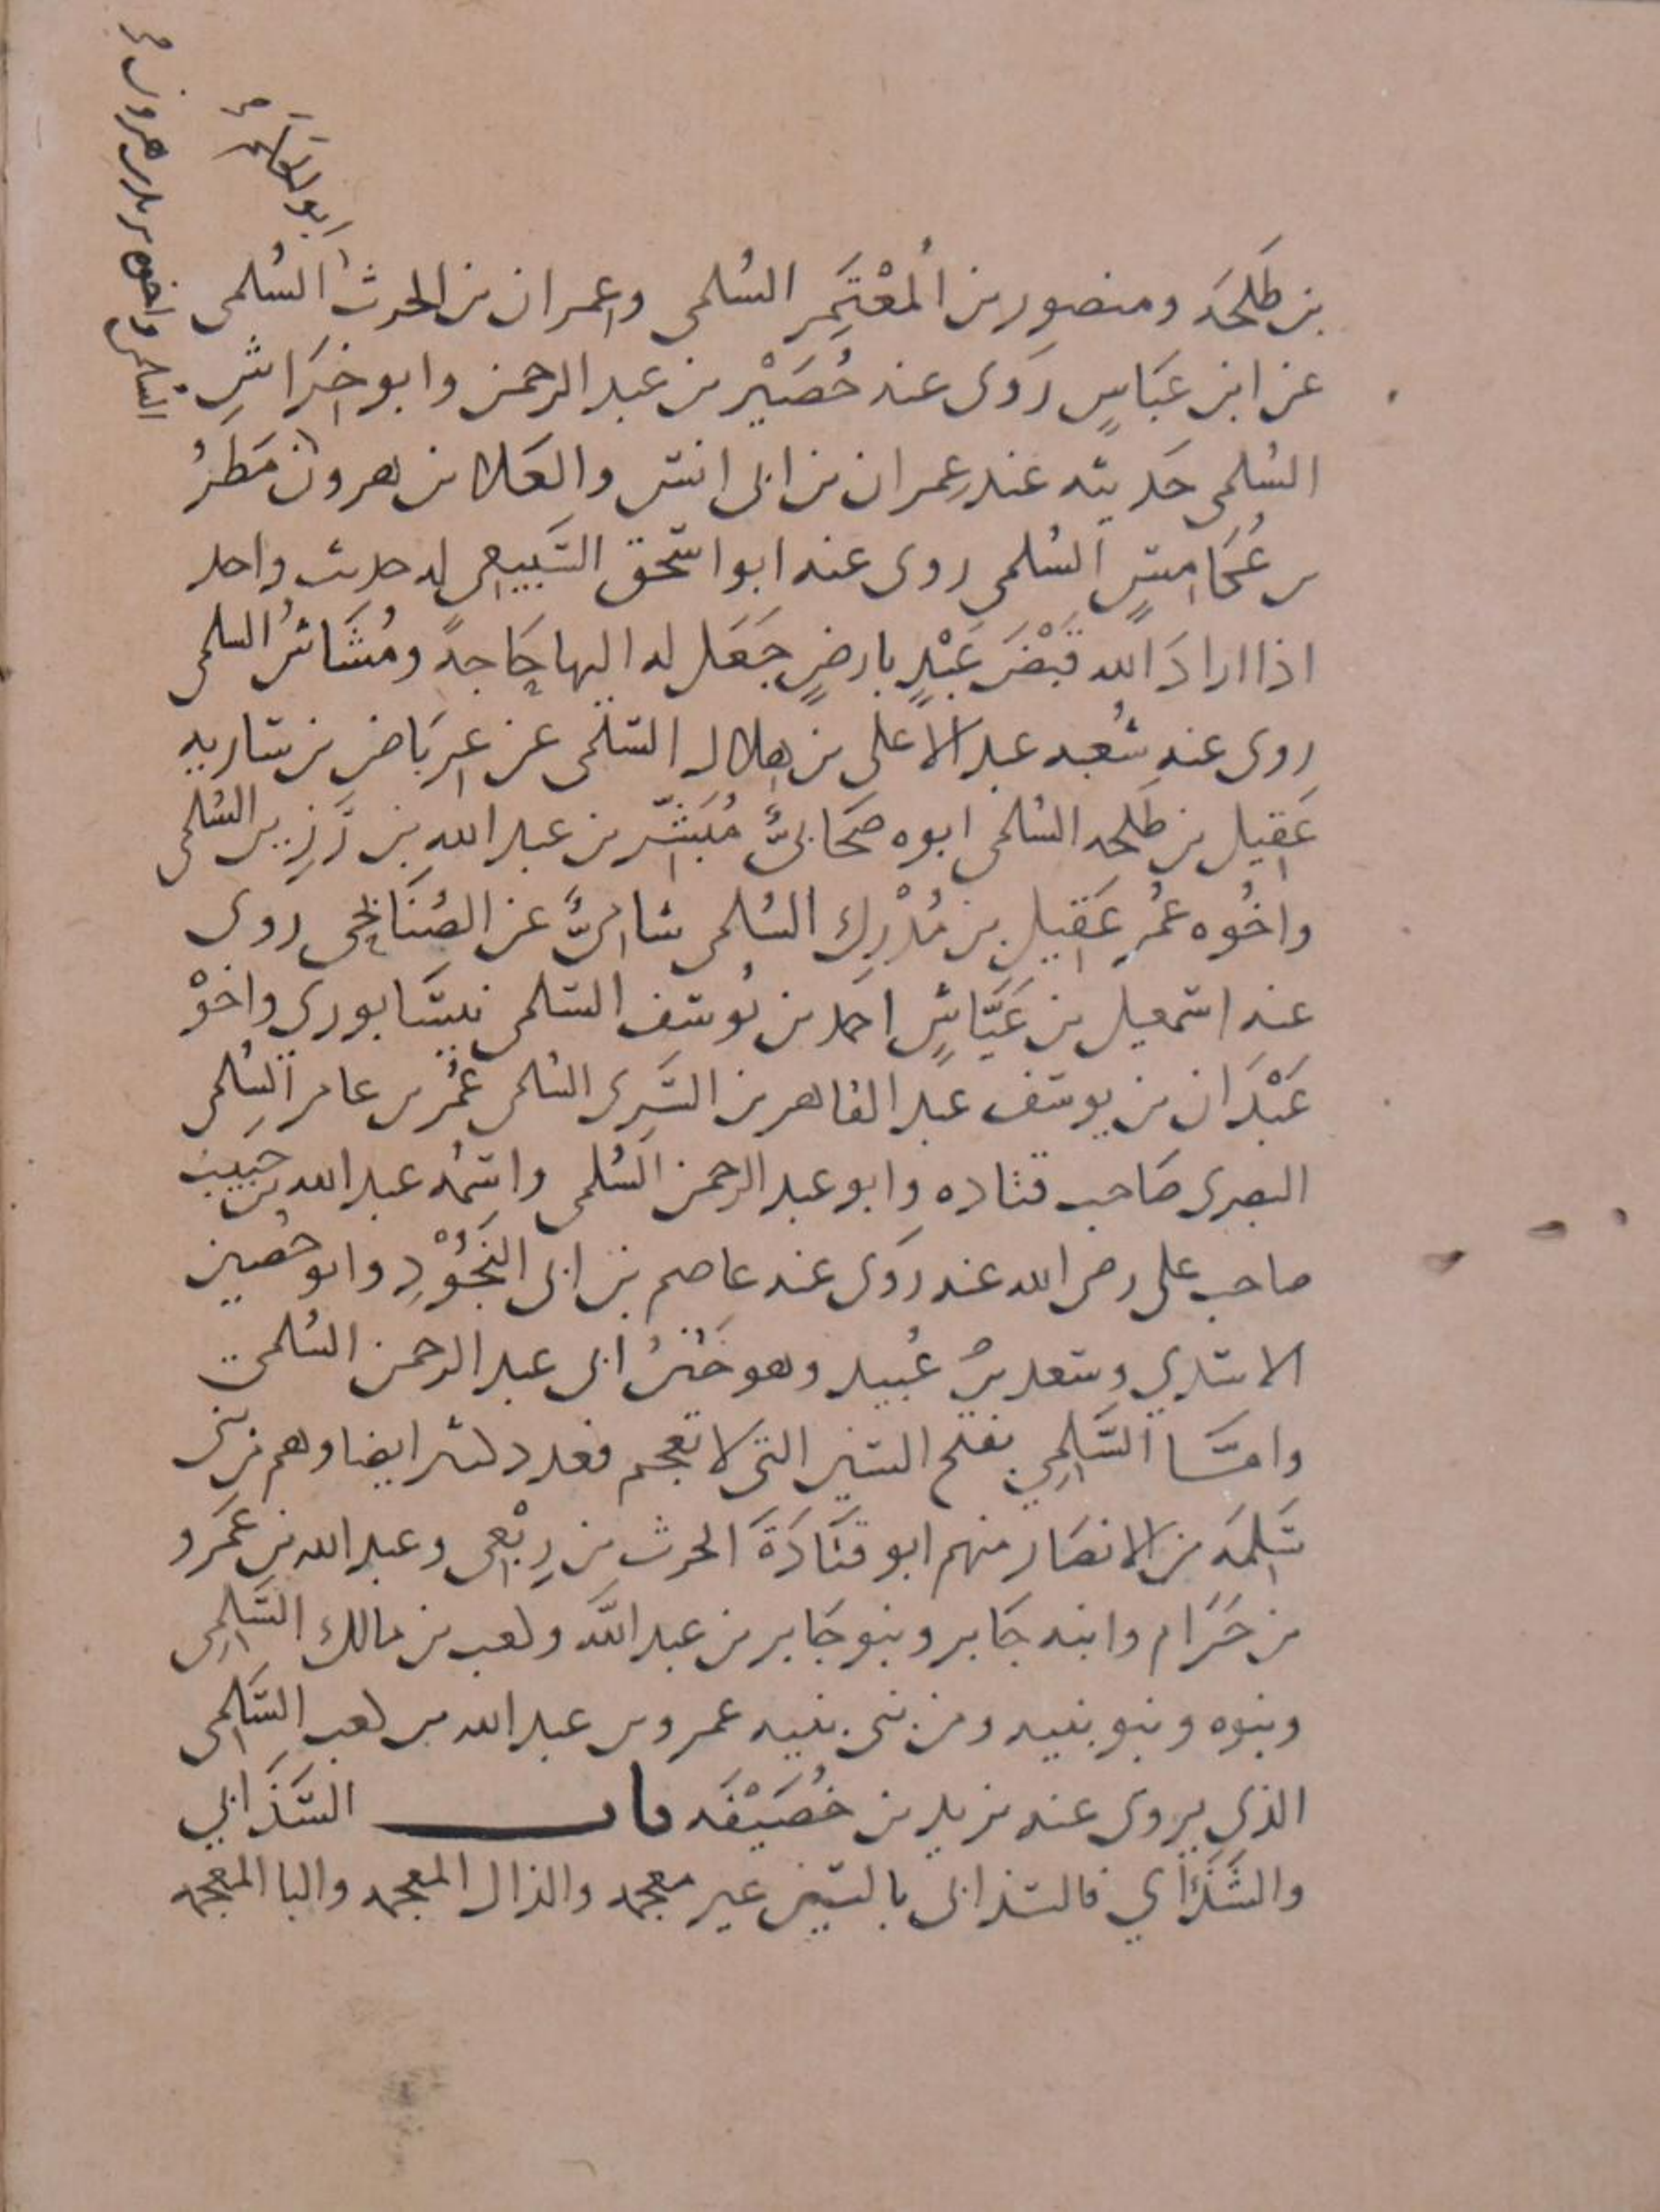 بن طلحه ومنصور بن المُعْتَمِر السُلمى وعمران بن الحرث السُلمى
عن ابن عبَاسٍ رَوى عنه حُصَيْن بن عبد الرحمن وابو خِرَاشِ
السُلمى حَديثه عند عِمران بن ابى انس والعَلا بن هرون مَطَرُ
بن عُكَامِسٍ السُلمى روى عنه ابو اسحق السَبيعى له حديث واحد
اذا ارادَ الله قَبْضَ عَبْدٍ بارضٍ جَعَل له اليها حَاجةً ومُشَاشُ السلمى
روى عنه شُعبه عبد الاعلى بن هلال السُلمى عن عِربَاض بن ساريه
عَقيل بن طَلحه السُلمى ابوه صَحَابىٌّ مُبَشّر بن عبد الله بن رَزِين السُلمى
واخُوه عُمر عَقيل بن مُدْرِك السُلمى شامىٌّ عن الصُنَابحِى روى
عنه اسمعيل بن عَيَّاشٍ احمد بن يُوسف السُلمى نيسَابورى واخوْ
عَبْدَان بن يوسف عبد القاهر بن السَرِى السُلمى عُمر بن عامر السُلمى
البصرى صَاحب قتاده وابو عبد الرحمن السُلمى واسمُه عبد الله بن حَبيب
صاحب على رضى الله عنه رَوى عنه عاصم بن ابى النَجُوْدِ وابو حَصين
الاسَدي وسَعد بنُ عُبيد وهو خَتَنُ ابى عبد الرحمن السُلمى
وامَّا السَّلَمِي بفتح السين التى لا تعجم فعدد كثير ايضا وهم من بنى
سَلِمَه من الانصَار منهم ابو قتَادَةَ الحرث بن رِبْعى وعبد الله بن عَمرو
بن حَرَام وابنه جَابر وبنو جَابر بن عبد الله وكعب بن مالك السَّلَمِى
وبنوه وبنو بنيه ومن بنى بنيه عمرو بن عبد الله بن كعب السَّلَمى
الذي يروى عنه يزيد بن خُصَيْفَه باب السَّذَابي
والشَّذَاَي فالسذابى بالسين غير معجمه والذال المعجمه والبا المعجمه